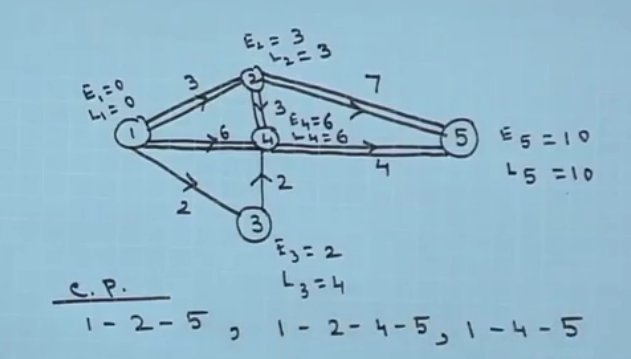 E₂ = 3
L₂ = 3
E₁ = 0
L₁ = 0
3
7
2
3
E₄ = 6
L₄ = 6
1
6
4
5
E₅ = 10
L₅ = 10
4
2
2
3
E₃ = 2
L₃ = 4
C.P.
1 - 2 - 5 , 1 - 2 - 4 - 5 , 1 - 4 - 5